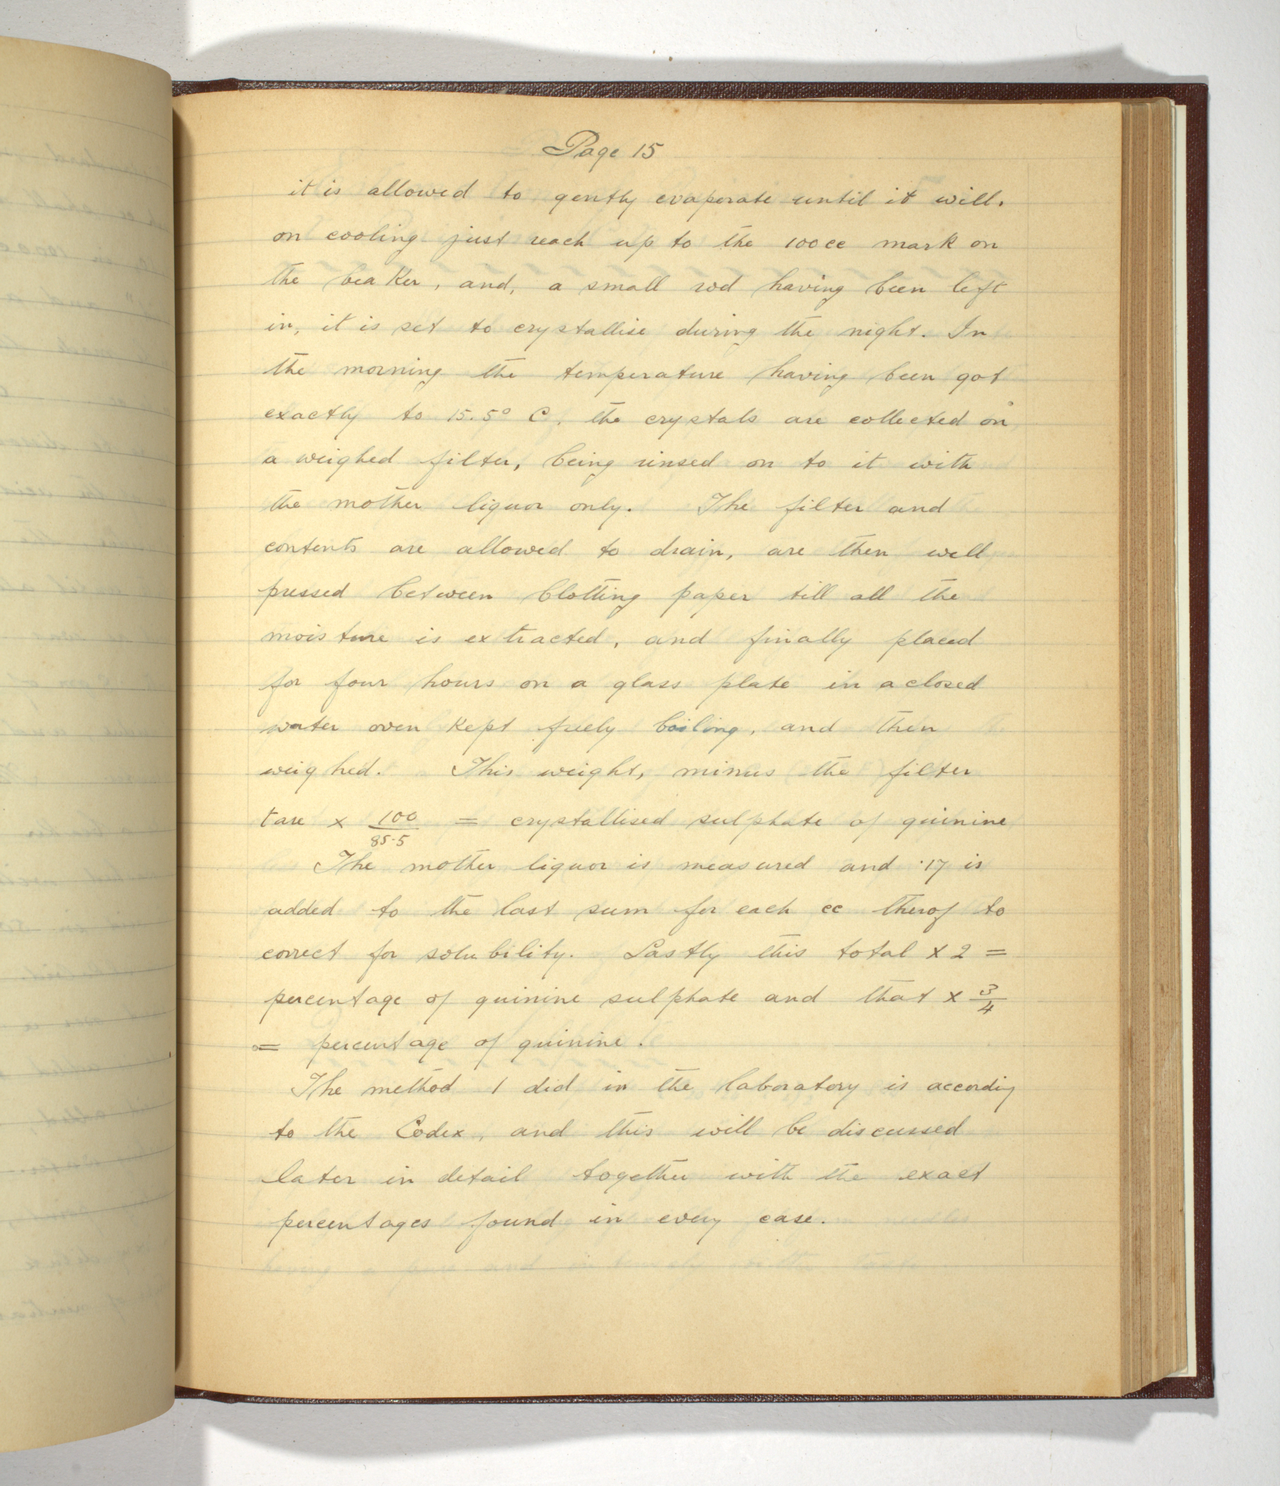 Page 15
it is allowed to gently evaporate until it will,
on cooling just reach up to the 100cc mark on
the beaKer, and, a small rod having been left
in, it is set to crystallise during the night. In
the morning the temperature having been got
exactly to 15.5° C. the crystals are collected on
a weighed filter, being rinsed on to it with
the mother liquor only. The filter and
contents are allowed to drain, are then well
pressed between blotting paper till all the
moisture is extracted, and finally placed
for four hours on a glass plate in a closed
water oven Kept freely boiling, and then
weighed. This weight, minus the filter
tare × 100/85·5 = crystallised sulphate of quinine
The mother liquor is measured and ·17 is
added to the last sum for each cc therof to
correct for solubility. Lastly this total × 2 =
percentage of quinine sulphate and that × 3/4
= percentage of quinine.
The method I did in the laboratory is accordig
to the Codex, and this will be discussed
later in detail together with the exact
percentages found in every case.